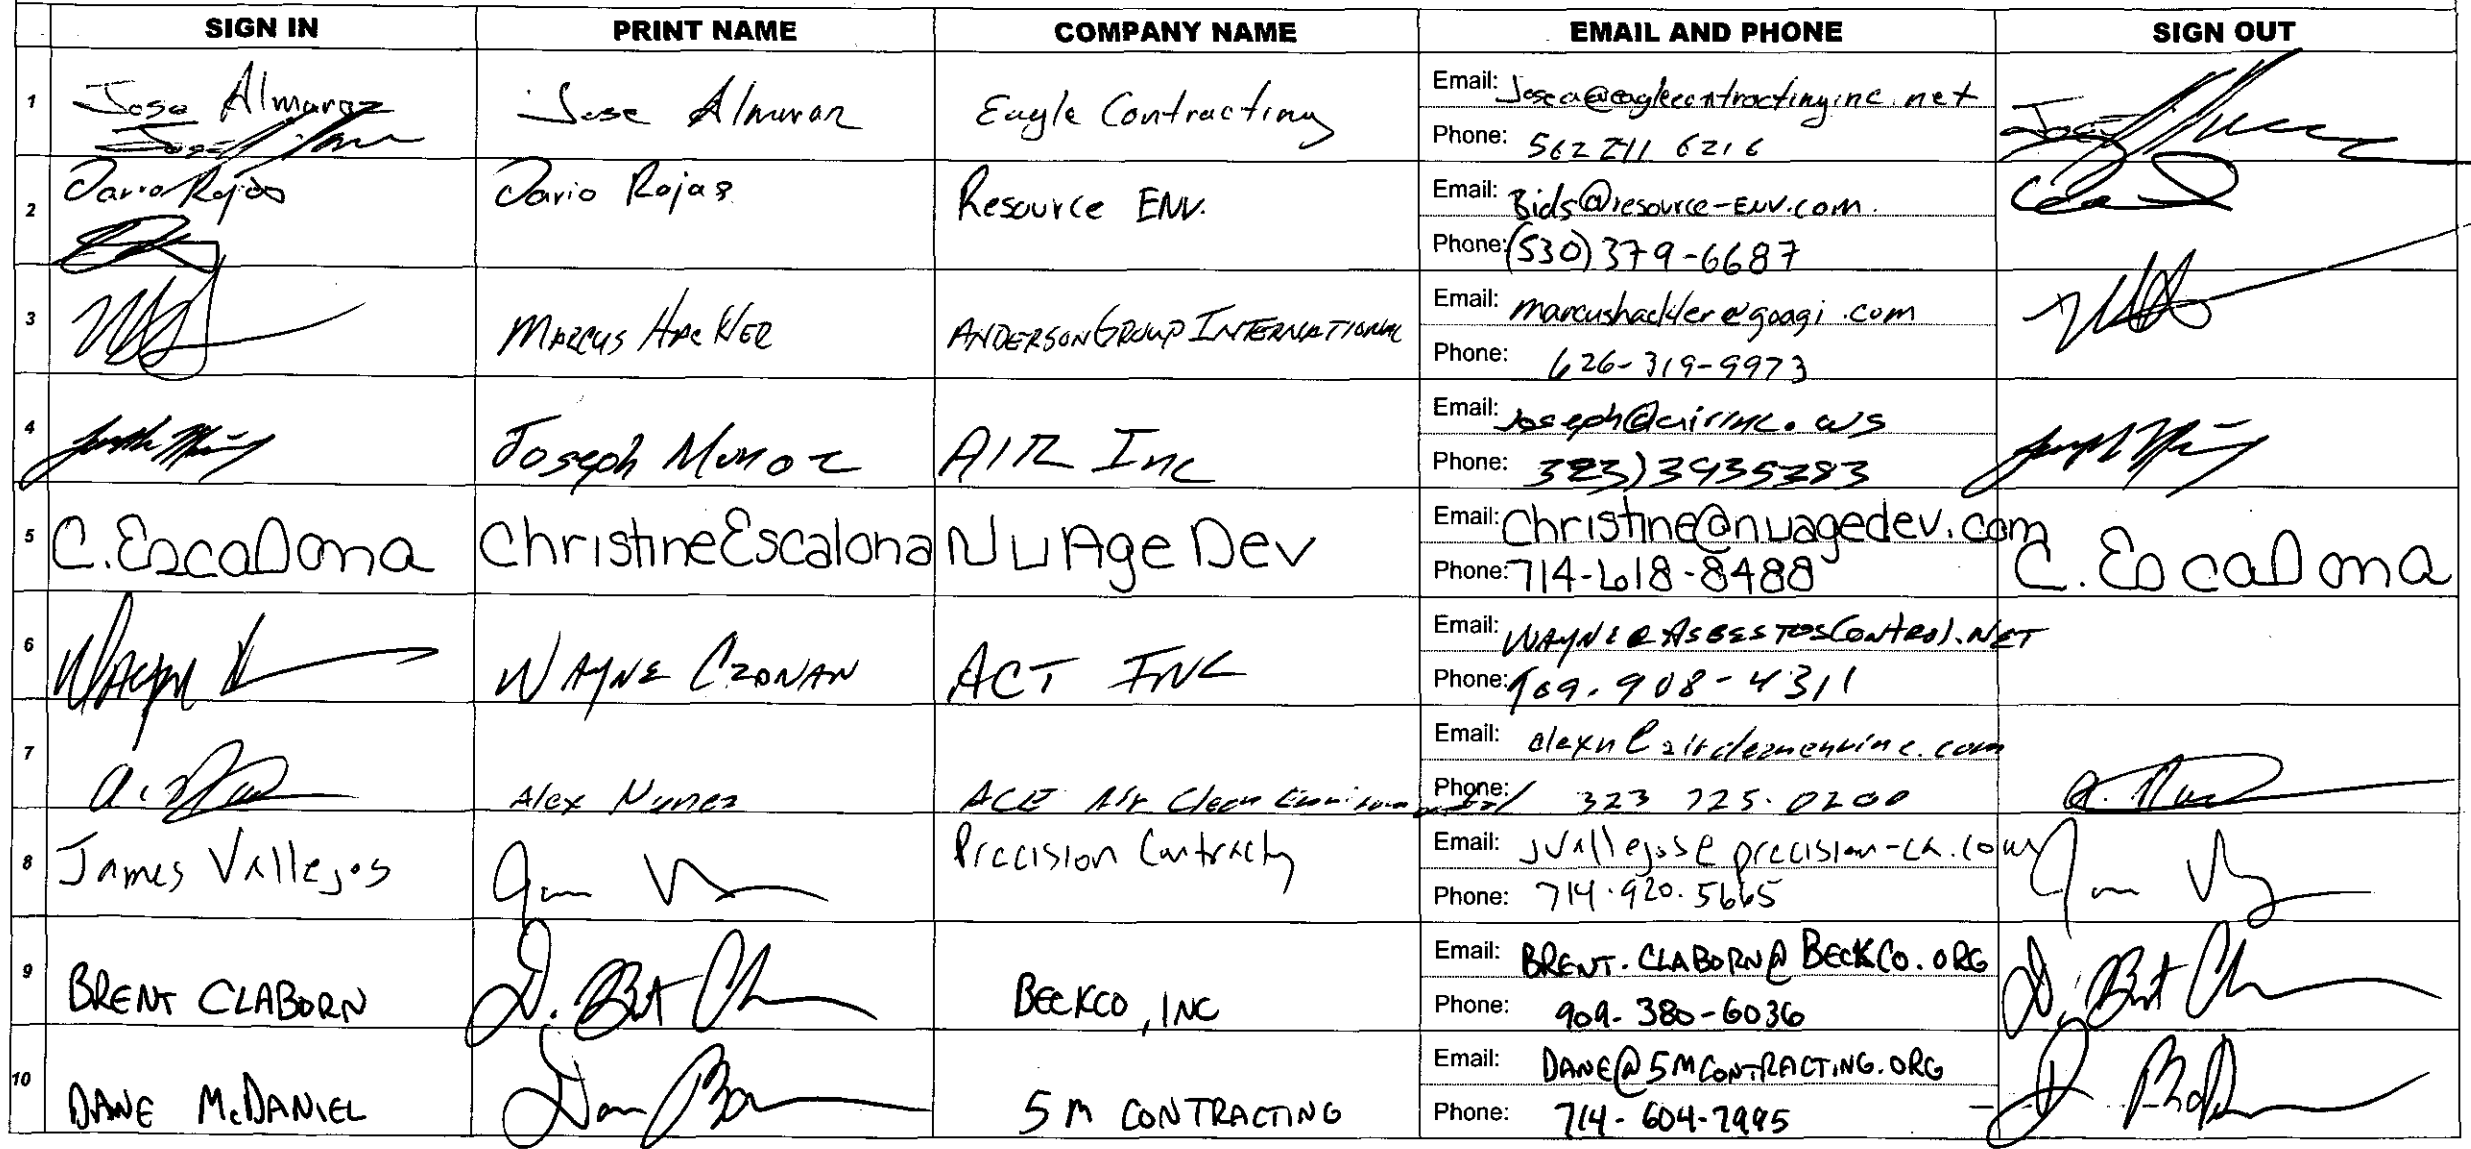 SIGN IN PRINT NAME COMPANY NAME EMAIL AND PHONE SIGN OUT
1 Jose Almaraz Jose Almaraz Eagle Contracting Email: Josea@eaglecontractinginc.net
Phone: 562 711 6216
2 Dario Rojas Dario Rojas Resource ENV. Email: Bids@resource-ENV.com.
Phone: (530) 379-6687
3 MARCUS HACKLER ANDERSON GROUP INTERNATIONAL Email: marcushackler@goagi.com
Phone: 626-319-9973
4 Joseph Munoz AIR Inc Email: Joseph@airinc.ws
Phone: 323) 3935283
5 C. Escalona Christine Escalona NuAge Dev Email: Christine@nuagedev.com C. Escalona
Phone: 714-618-8488
6 WAYNE CZONAN ACT INC Email: WAYNE@ASBESTOSCONTROL.NET
Phone: 909.908-4311
7 Alex Nunez ACE Air Clean Environmental Email: alexn@aircleanenvinc.com
Phone: 323 725.0200
8 James Vallejos Precision Contractg Email: jvallejos@precision-ca.com
Phone: 714.920.5665
9 BRENT CLABORN BECKCO, INC Email: BRENT.CLABORN@BECKCO.ORG
Phone: 909-380-6036
10 DANE McDANIEL 5M CONTRACTING Email: DANE@5MCONTRACTING.ORG
Phone: 714-604-7995